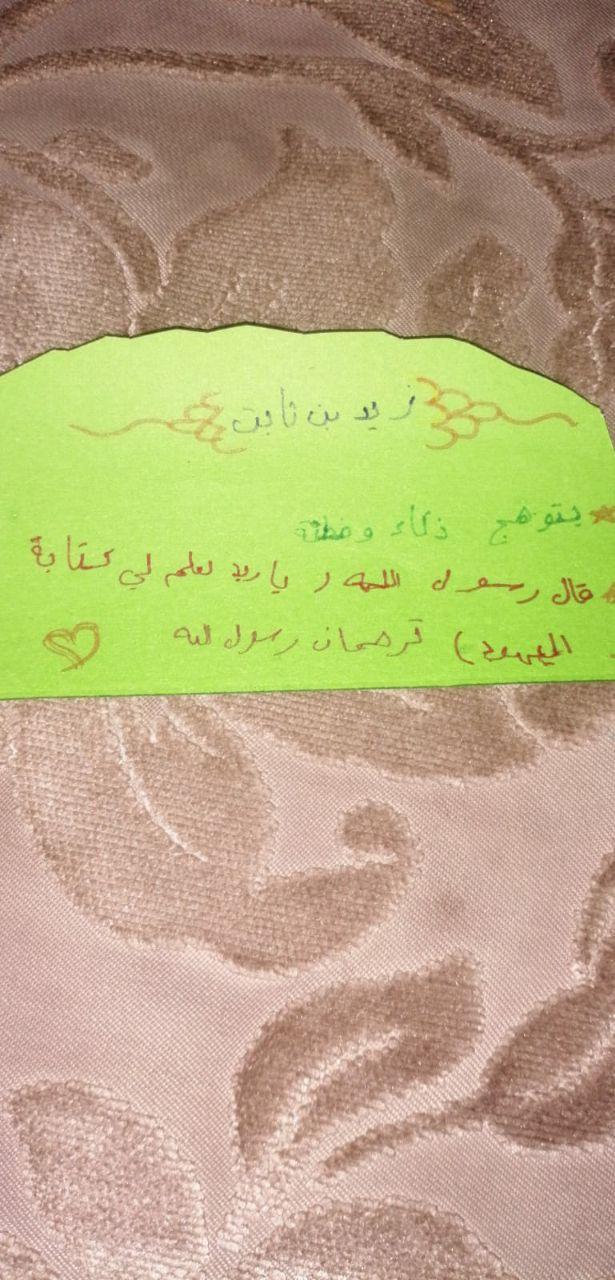 زيد بن ثابت
يتوهج ذكاء وفطنة
قال رسول الله ( يا زيد تعلم لي كتابة
اليهود) ترجمان رسول لله